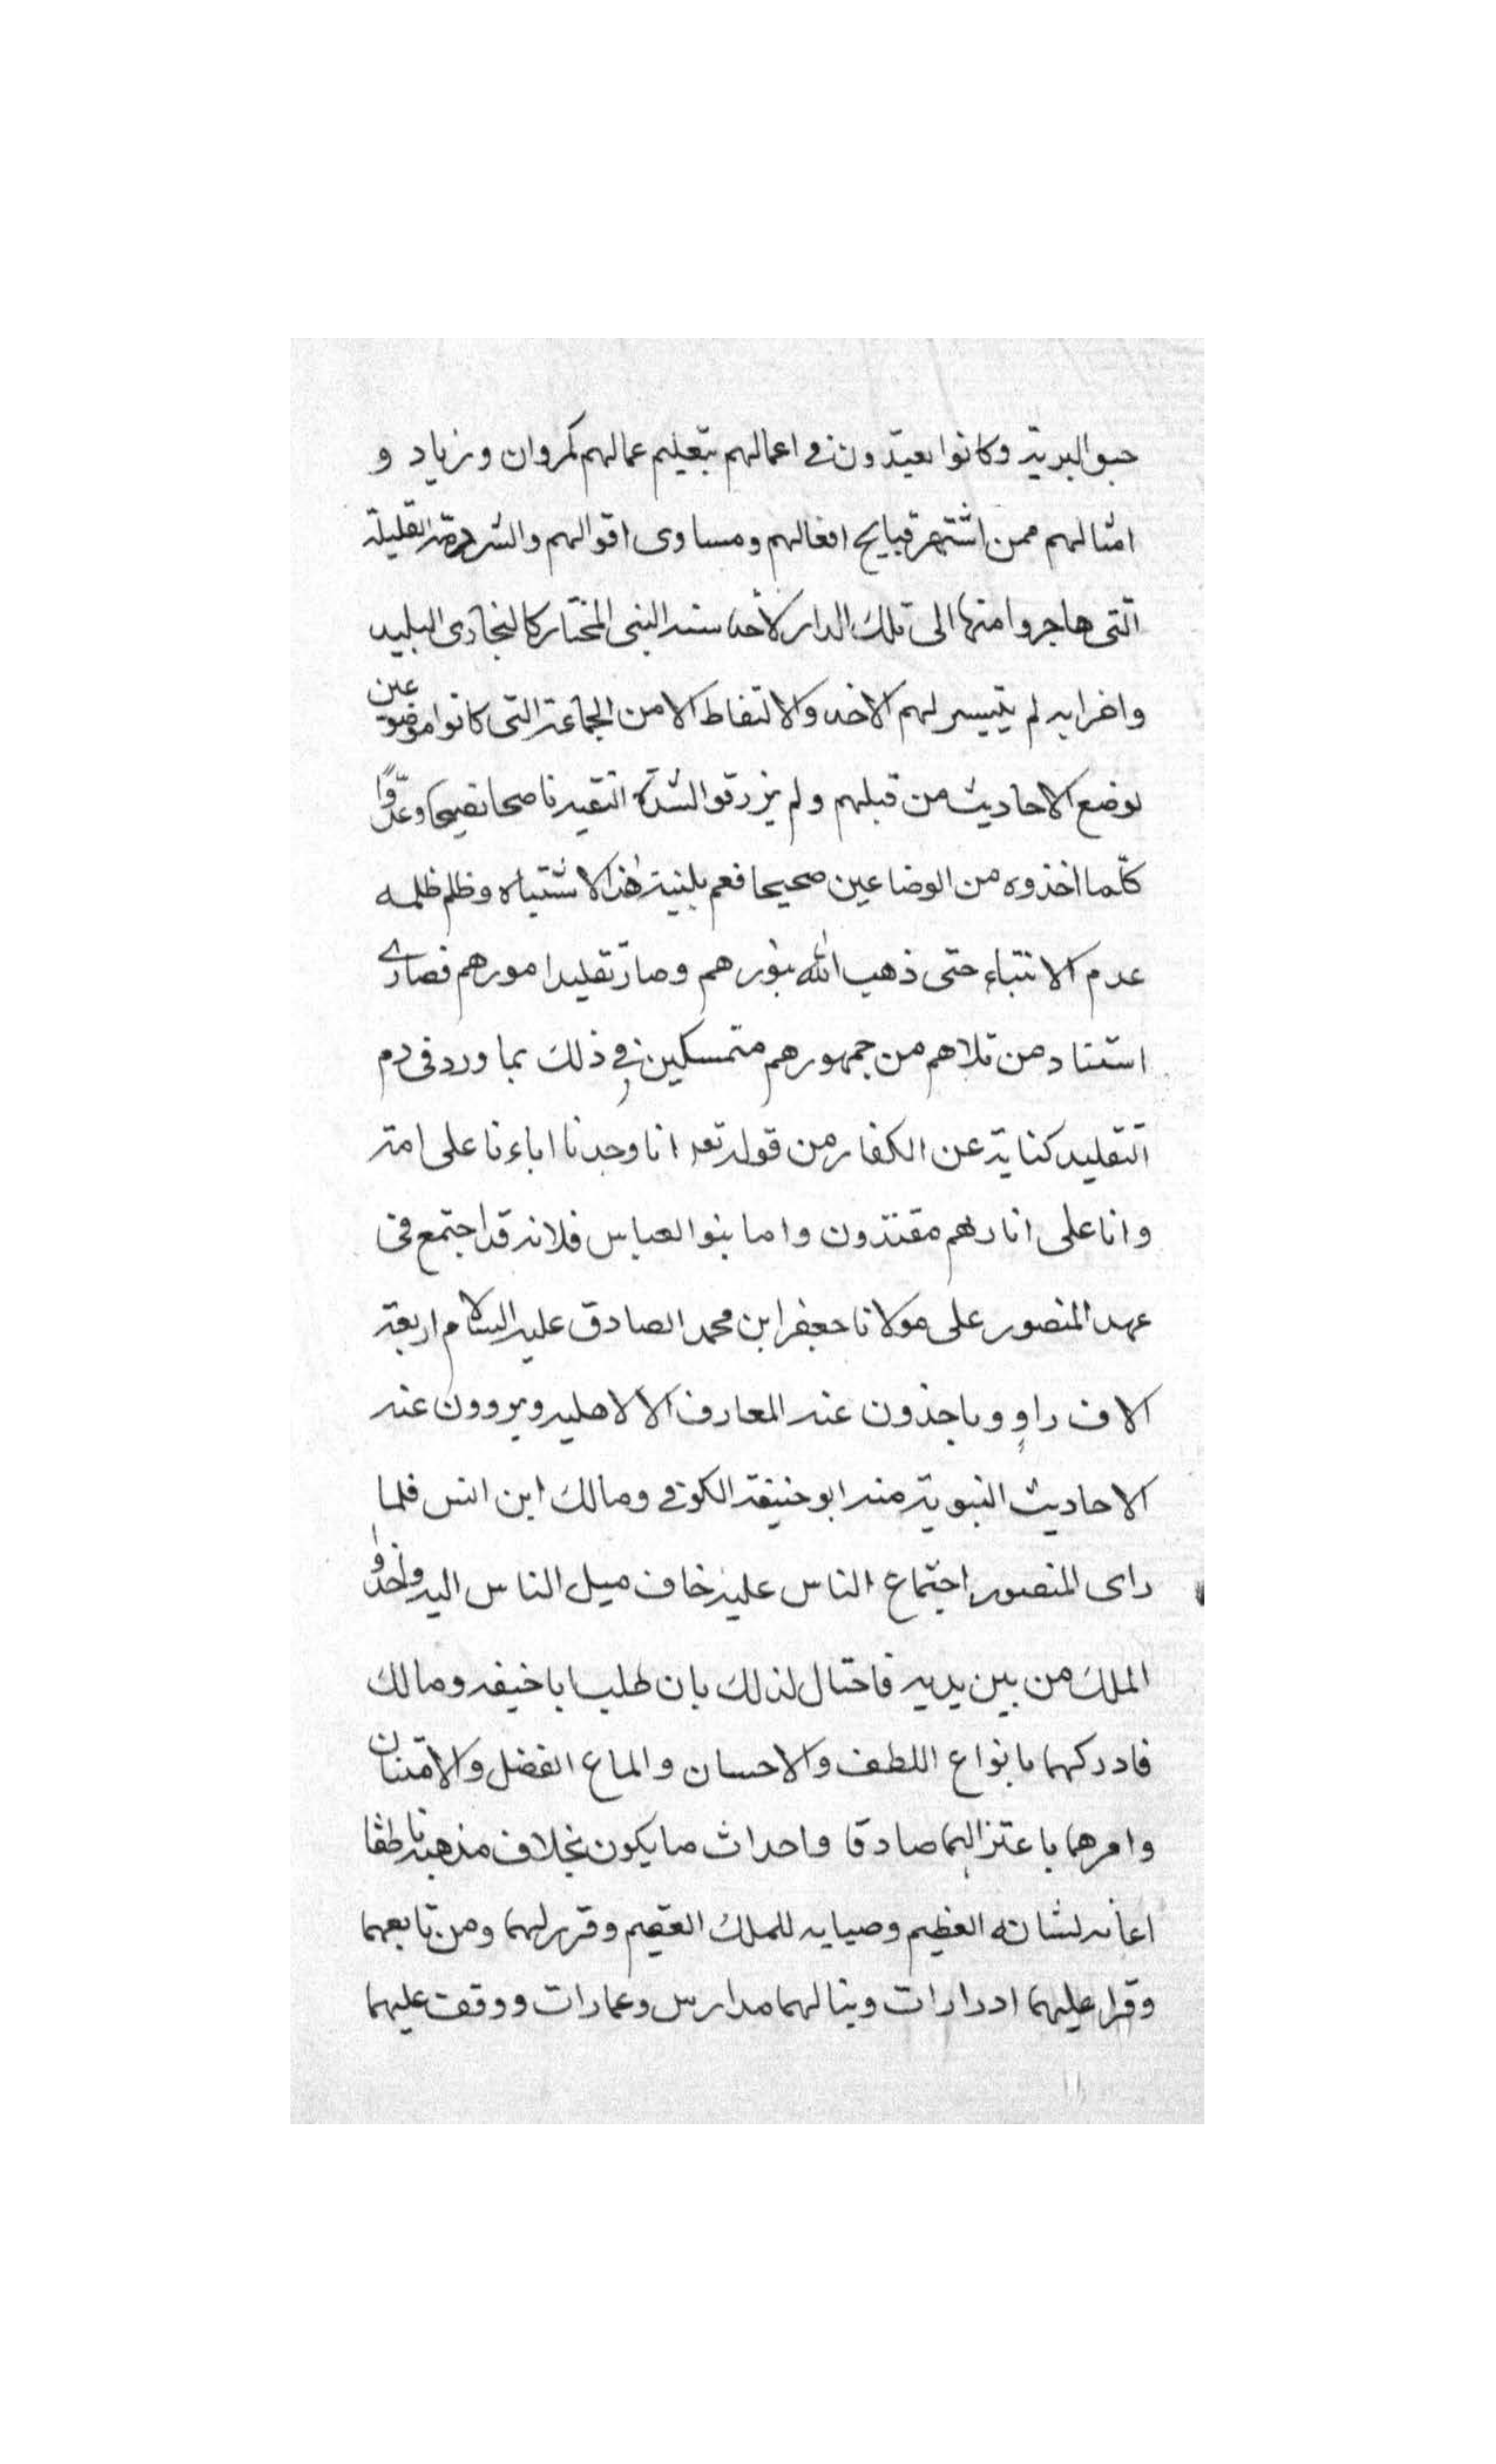 حبو البرية وكانوا يعتدون في اعمالهم بتعليم عمالهم كمروان وزياد و
امثالهم ممن اشتهر قبايح افعالهم ومساوى اقوالهم والشرذمة القليلة
التى هاجروا منها الى تلك الدار لاخذ سنة النبى المختار كالبخارى البليد
واضرابه لم يتيسر لهم الاخذ والالتقاط الا من الجماعة التى كانوا موضوعين
لوضع الاحاديث من قبلهم ولم يرزقوا لشدة التقية ناصحا نصيحا وعدّوا
كلّما اخذوه من الوضاعين صحيحا فعم بلية هذا الاشتباه وظلم ظلمه
عدم الانتباء حتى ذهب الله بنورهم وصار تقليد امورهم قصارى
استناد من تلاهم من جمهورهم متمسكين في ذلك بما ورد فى ذم
التقليد كناية عن الكفار من قوله تعه انا وجدنا اباءنا على امة
وانا على اثارهم مقتدون واما بنو العباس فلانه قد اجتمع فى
عهد المنصور على مولانا جعفر ابن محمد الصادق عليه السلام اربعة
الاف راوٍ وياخذون عنه المعارف الالاهيه ويروون عنه
الاحاديث النبوية منه ابو حنيفة الكوفي ومالك ابن انس فلما
راى المنصور اجتماع الناس عليه خاف ميل الناس اليه واخذوا
الملك من بين يديه فاحتال لذلك بان طلب ابا حنيفه ومالك
فادركهما بانواع اللطف والاحسان والماع الفضل والامتنان
وامرهما باعتزالهما صادقا واحداث ما يكون بخلاف مذهبه ناطقا
اعانه لشانه العظيم وصيايه للملك العقيم وقرر لهما ومن تابعهما
وقرا عليهما ادرارات وبنا لهما مدارس وعمارات ووقف عليهما